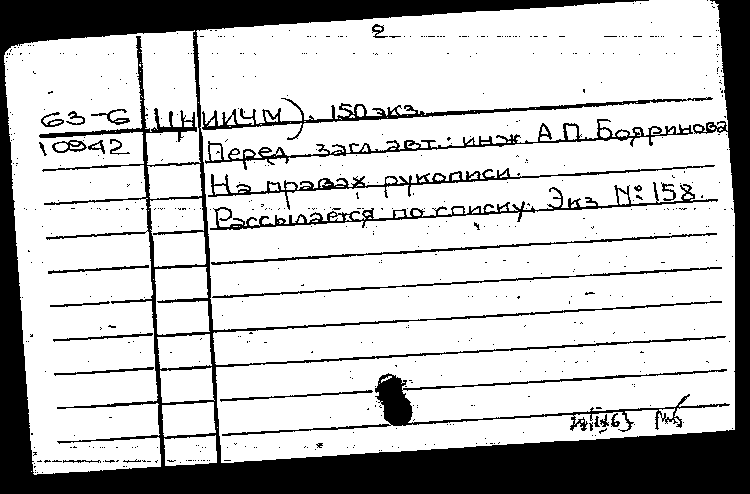 2
63-6 ЦНИИЧМ). 150 экз.
10942 Перед загл. авт.: инж. А.П. Бояринова
На правах рукописи.
Рассылается по списку. Экз № 158.